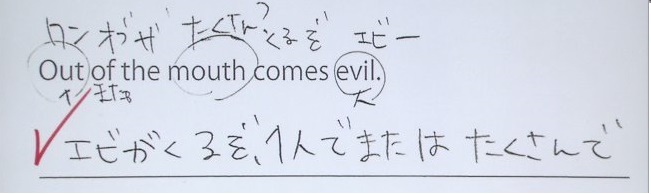 ワン オブ ザ たくさん? くるぞ エビー
Out of the mouth comes evil.
エビがくるぞ、1人でまたは たくさんで